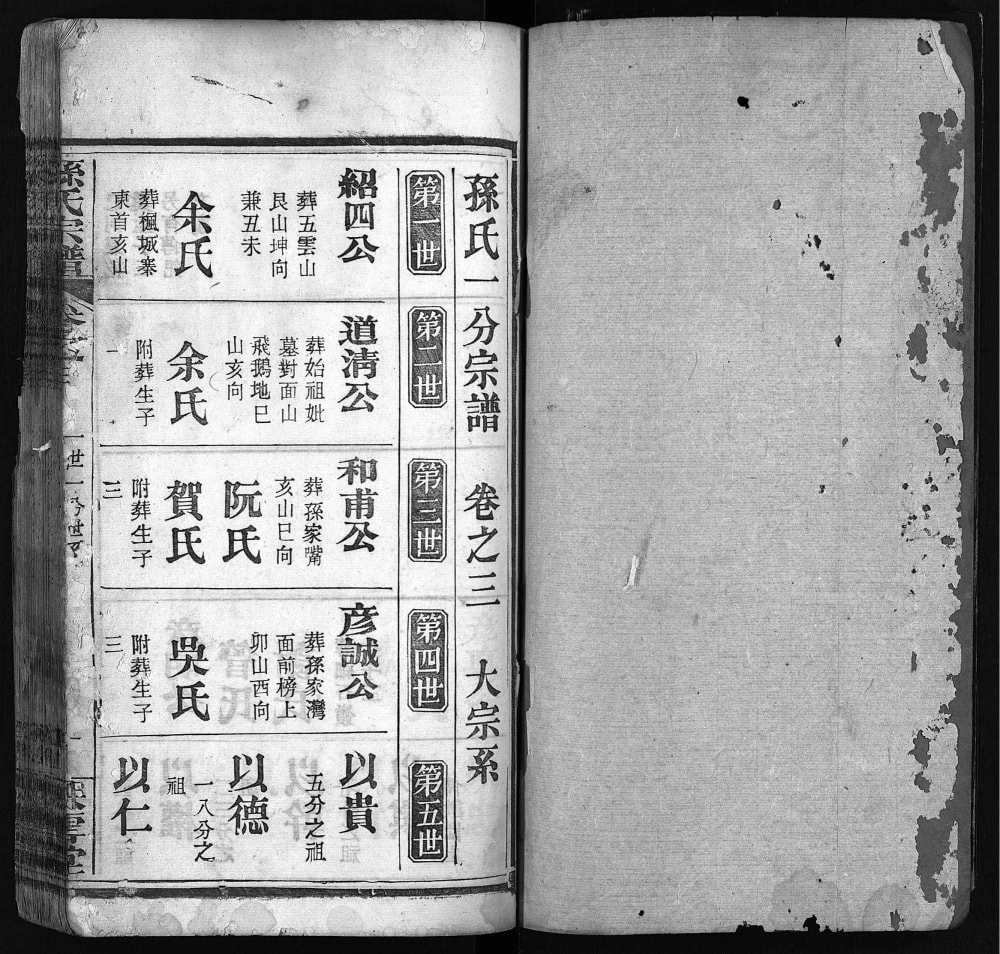 孫氏一分宗譜 卷之三 大宗系
第一世
第二世
第三世
第四世
第五世
紹四公
葬五雲山
艮山坤向
兼丑未
余氏
葬楓城寨
東首亥山
道淸公
葬始祖妣
墓對面山
飛鵝地巳
山亥向
余氏
附葬生子
一
和甫公
葬孫家嘴
亥山巳向
阮氏
賀氏
附葬生子
三
彦誠公
葬孫家灣
面前榜上
卯山酉向
吳氏
附葬生子
三
以貴
五分之祖
以德
一八分之
祖
以仁
孫氏宗譜
一世